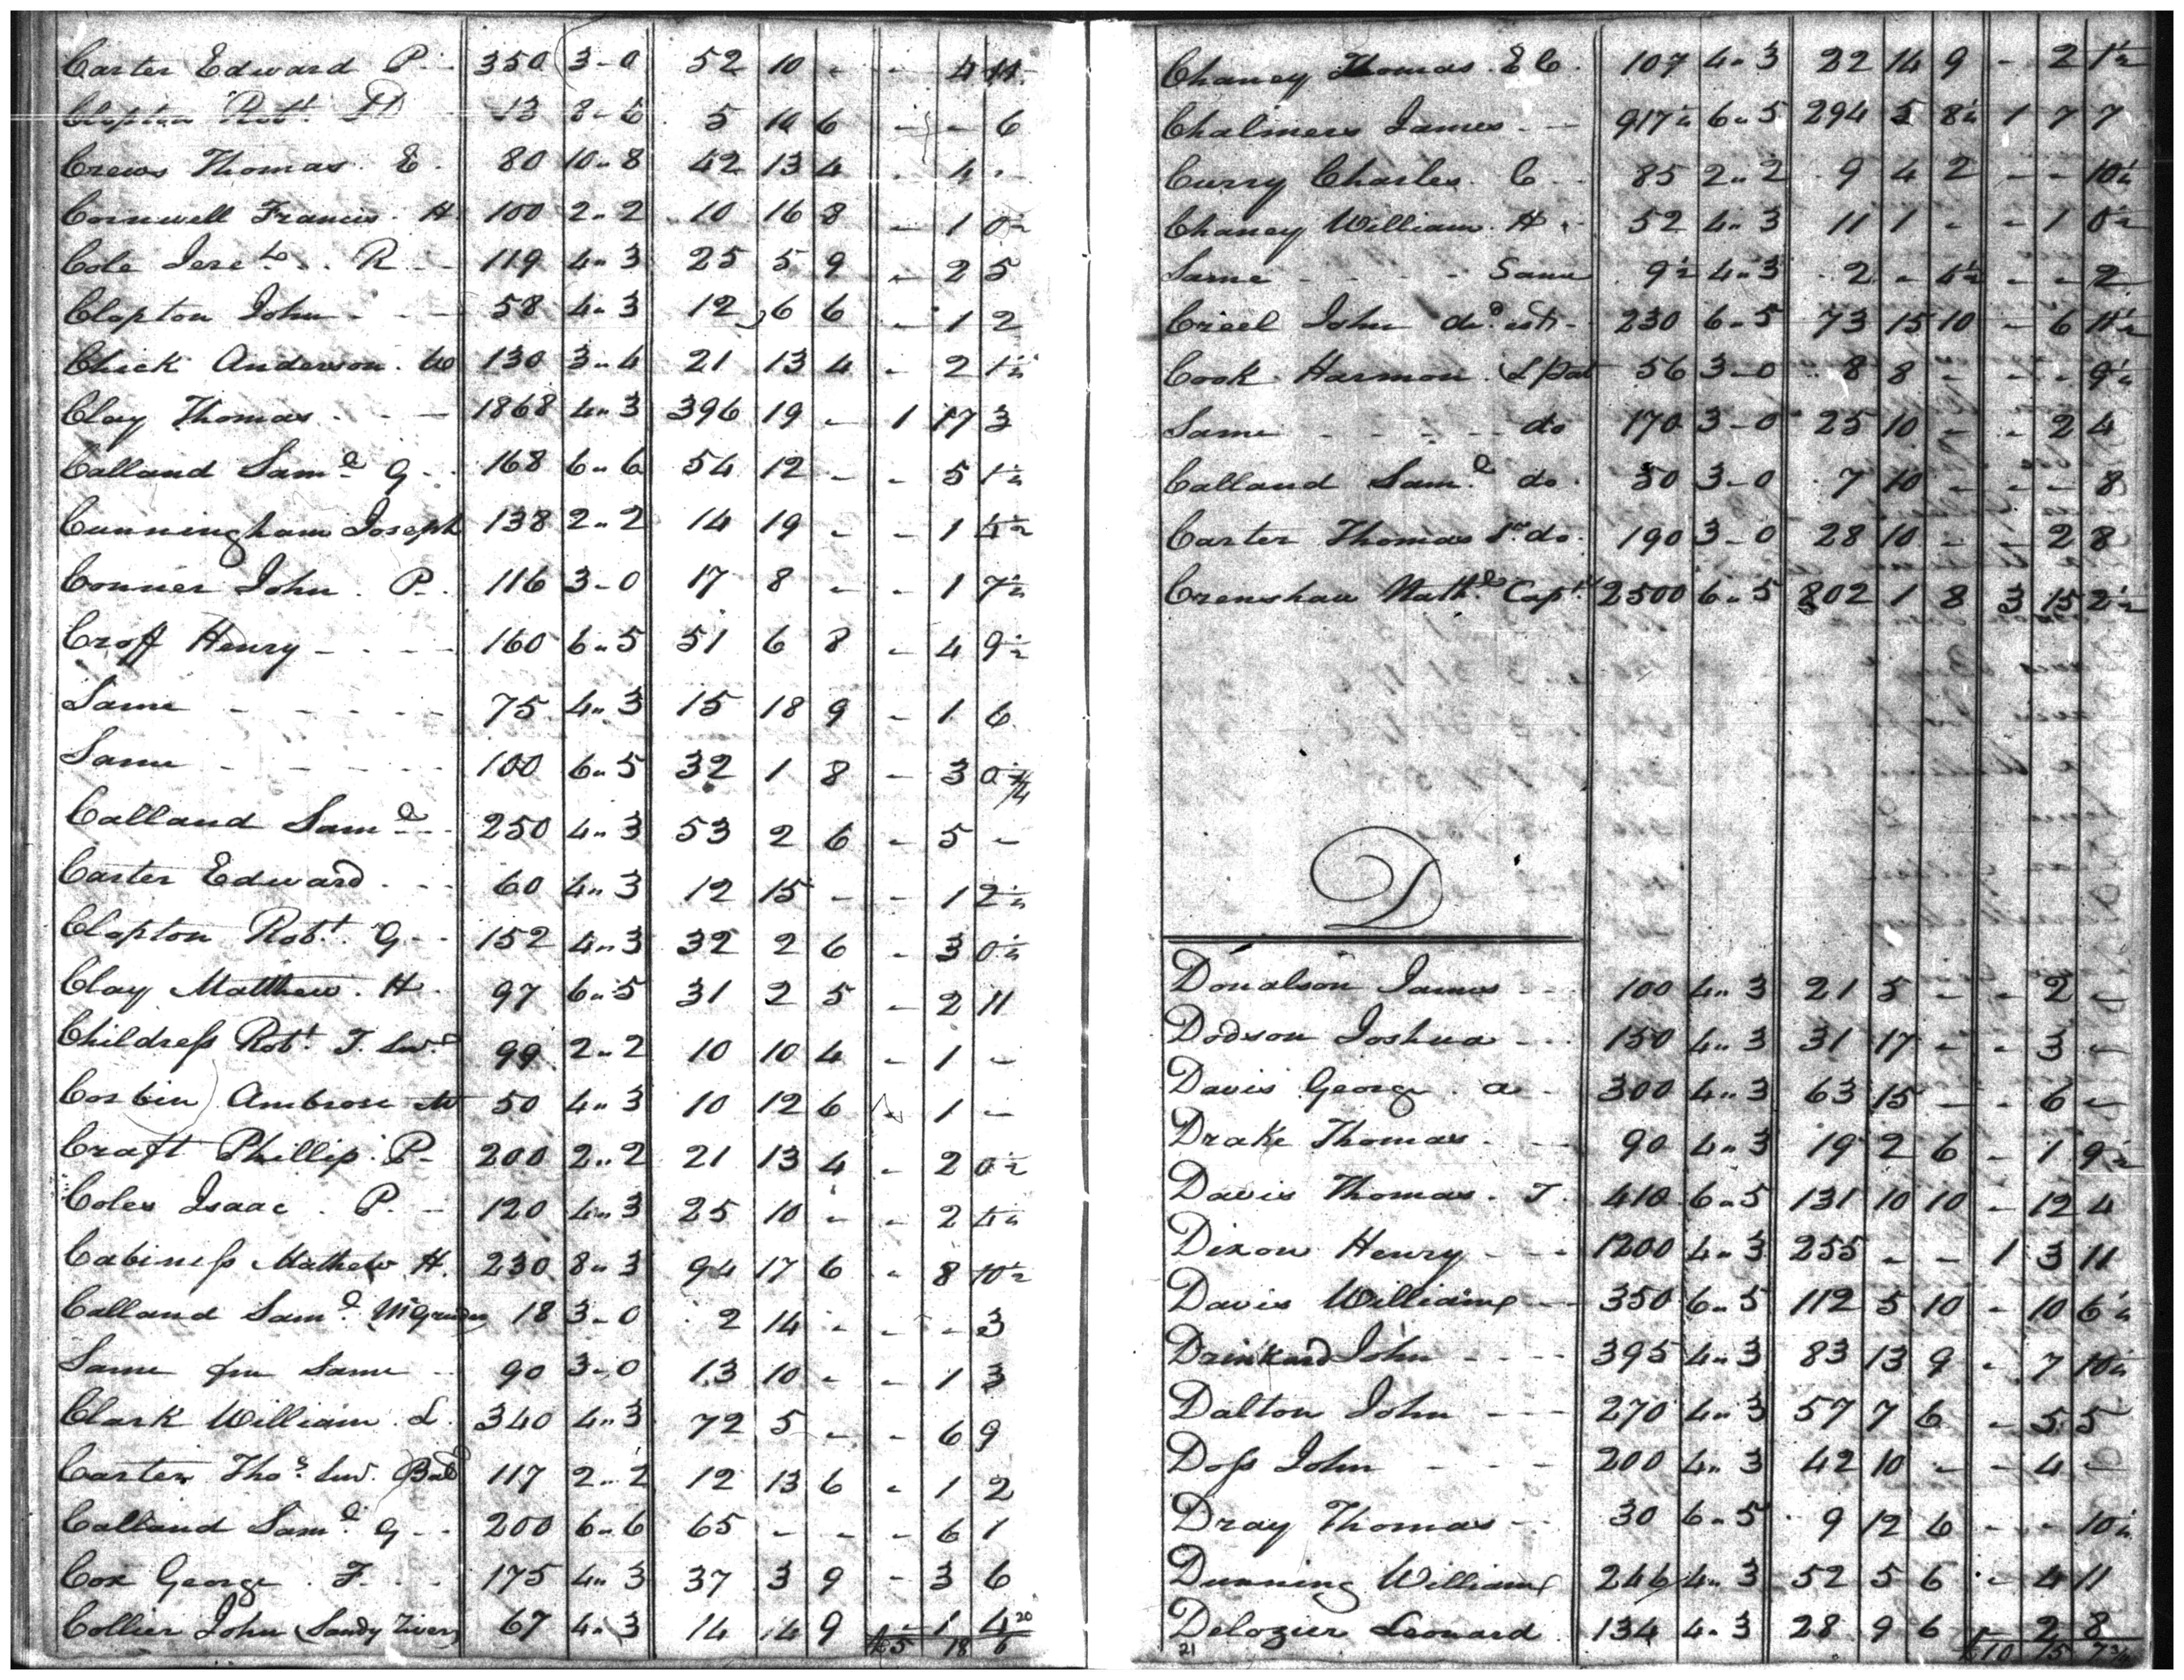 Carter Edward P. 350 3-0 52 10 - - 4 11
Clopton Robt. 13 8-6 5 10 6 - - 6
Crews Thomas E. 80 10-8 42 13 4 - 4 -
Cornwell Francis H. 100 2-2 10 16 8 - 1 0½
Cole R 119 4-3 25 5 9 - 2 5
Clopton John 58 4-3 12 6 6 - 1 2
Chick Anderson 130 3-4 21 13 4 - 2 1½
Clay Thomas 1868 4-3 396 19 - 1 17 3
Calland Saml. G. 168 6-6 54 12 - - 5 1½
Cunningham Joseph 138 2-2 14 19 - - 1 4½
Conner John P. 116 3-0 17 8 - - 1 7½
Croff Henry 160 6-5 51 6 8 - 4 9½
Same 75 4-3 15 18 9 - 1 6
Same 100 6-5 32 1 8 - 3 0
Calland Saml. 250 4-3 53 2 6 - 5 -
Carter Edward 60 4-3 12 15 - - 1 2½
Clopton Robt. G 152 4-3 32 2 6 - 3 0½
Clay Matthew H 97 6-5 31 2 5 - 2 11
Childress Robt. T. 99 2-2 10 10 4 - 1 -
Corbin Ambrose M 50 4-3 10 12 6 - 1 -
Craft Phillip P. 200 2-2 21 13 4 - 2 0½
Coles Isaac P. 120 4-3 25 10 - - 2 4½
Cabiness Mathew H. 230 8-3 94 17 6 - 8 10½
Calland Saml. 18 3-0 2 14 - - - 3
Same fm Same 90 3-0 13 10 - - 1 3
Clark William L. 340 4-3 72 5 - - 6 9
Carter Thos. 117 2-2 12 13 6 - 1 2
Calland Saml. G 200 6-6 65 - - - 6 1
Cox George F. 175 4-3 37 3 9 - 3 6
Collier John Sandy River 67 4-3 14 14 9 - 1 4
£5 18 6
Chaney Thomas E C. 107 4-3 22 14 9 - 2 1½
Chalmers James 917½ 6-5 294 5 8½ 1 7 7
Curry Charles C 85 2-2 9 4 2 - - 10½
Chaney William H 52 4-3 11 1 - - 1 0½
Same Same 9½ 4-3 2 - 4½ - - 2
Creel John decd. est. 230 6-5 73 15 10 - 6 11½
Cook Harmon 56 3-0 8 8 - - - 9½
Same do 170 3-0 25 10 - - 2 4
Calland Saml. do. 50 3-0 7 10 - - - 8
Carter Thomas do. 190 3-0 28 10 - - 2 8
Crenshaw Nathl. Capt. 2500 6-5 802 1 8 3 15 2½
D
Donalson James 100 4-3 21 5 - - 2 -
Dodson Joshua 150 4-3 31 17 - - 3 -
Davis George a 300 4-3 63 15 - - 6 -
Drake Thomas 90 4-3 19 2 6 - 1 9½
Davis Thomas T. 410 6-5 131 10 10 - 12 4
Dixon Henry 1200 4-3 255 - - 1 3 11
Davis William 350 6-5 112 5 10 - 10 6½
Drinkard John 395 4-3 83 13 9 - 7 10½
Dalton John 270 4-3 57 7 6 - 5 5
Doss John 200 4-3 42 10 - - 4 -
Dray Thomas 30 6-5 9 12 6 - - 10½
Dunning William 246 4-3 52 5 6 - 4 11
Delozier Leonard 134 4-3 28 9 6 - 2 8
21 £10 15